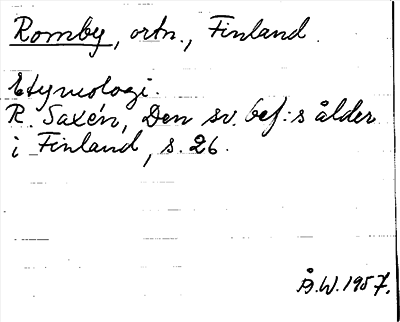 Romby, ortn., Finland.
Etymologi.
R. Saxén, Den sv. bef:s ålder
i Finland, s. 26.
Å.W. 1957.